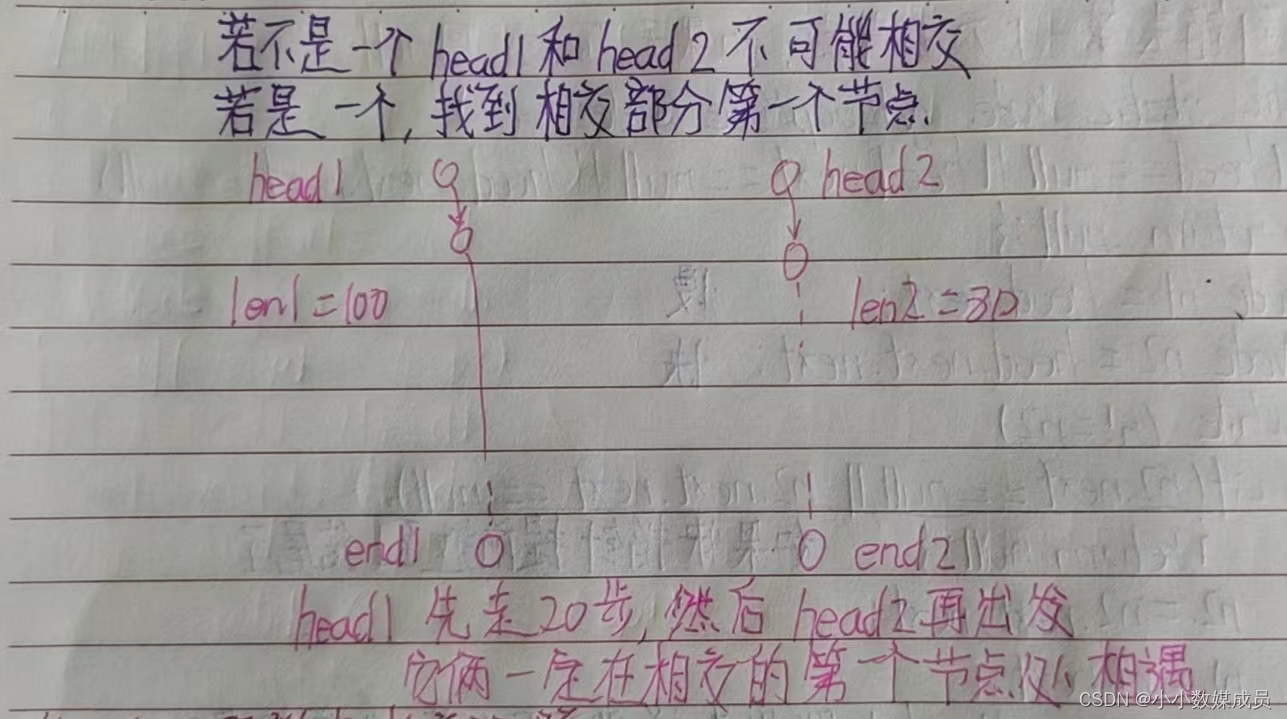 若不是一个head1和head2不可能相交
若是一个,找到相交部分第一个节点.
head1 head2
len1=100 len2=80
end1 end2
head1先走20步,然后head2再出发
它俩一定在相交的第一个节点处相遇
CSDN @小小数媒成员